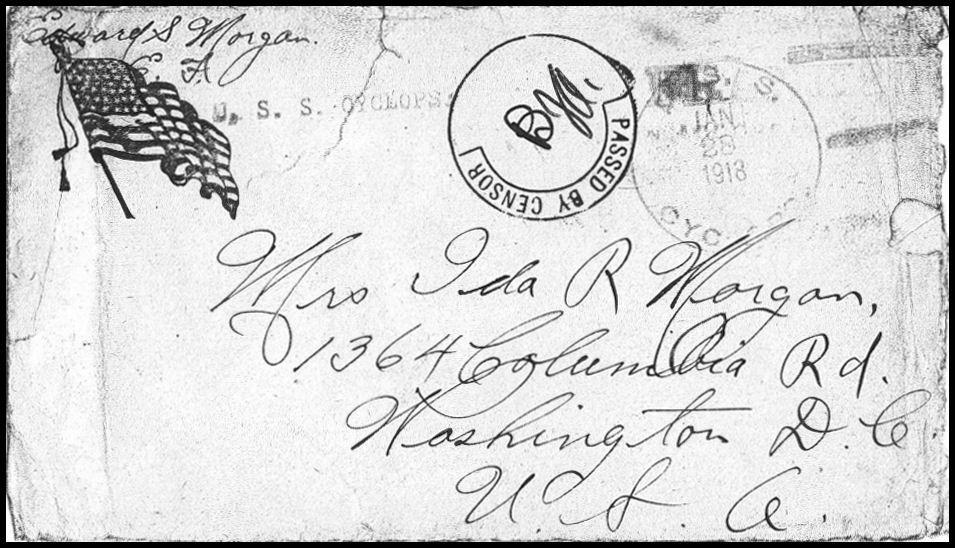 Edward S Morgan.
C. F.
U. S. S. CYCLOPS.
PASSED BY CENSOR
U. S. S.
JAN
28
1918
CYC
Mrs Ida R Morgan,
1364 Columbia Rd.
Washington D. C.
U. S. A.